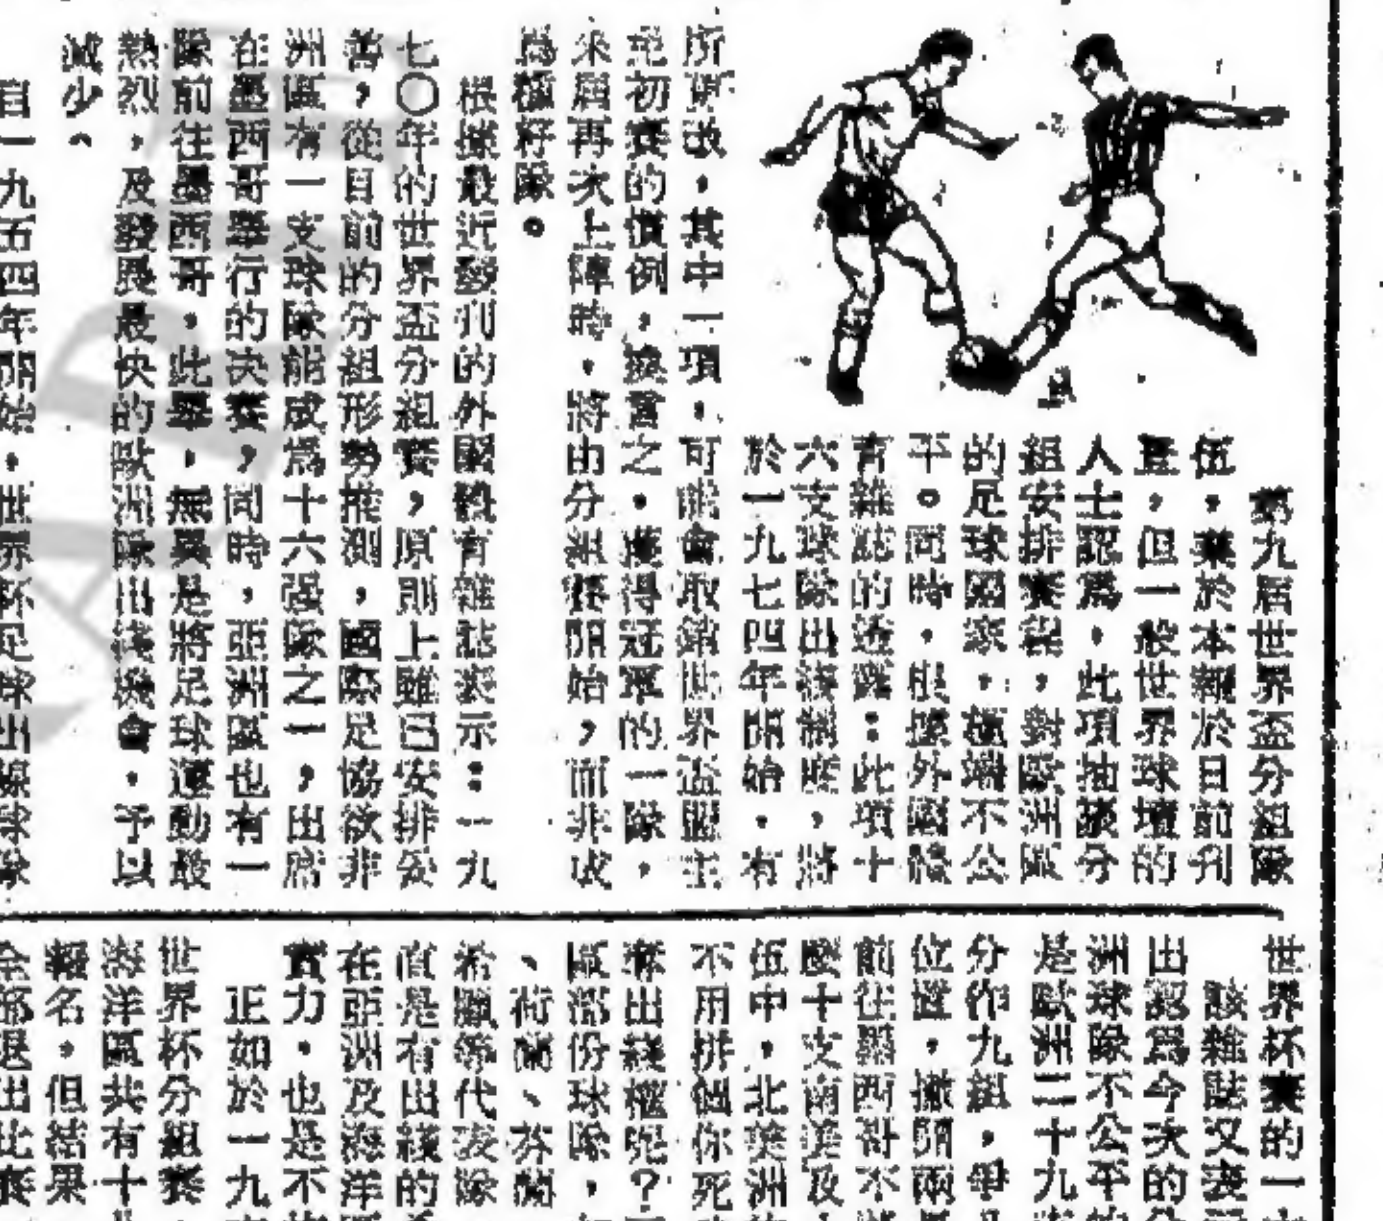 第九届世界盃分組隊
伍，業於本報於日前刊
登，但一般世界球壇的
人士認爲，此項抽籤分
組安排賽程，對歐洲區
的足球國家，極端不公
平。同時，根據外國體
育雜誌的透露：此項十
六支球隊出綫制度，將
於一九七四年開始，有
所更改，其中一項，可能會取銷世界盃盟主
免初賽的慣例，換言之，獲得冠軍的一隊，
來届再次上陣時，將由分組賽開始，而非成
爲種籽隊。
根據最近發刊的外國體育雜誌表示：一九
七〇年的世界盃分組賽，原則上雖已安排妥
善，從目前的分組形勢推測，國際足協欲非
洲區有一支球隊能成爲十六强隊之一，出席
在墨西哥舉行的決賽，同時，亞洲區也有一
隊前往墨西哥，此舉，無異是將足球運動最
熱烈，及發展最快的歐洲隊出綫機會，予以
減少。
自一九五四年開始，世界杯足球出線球隊
世界杯賽的一
該雜誌又表
出認爲今次的
洲球隊不公平的
是歐洲二十九
分作九組，爭
位置，撇開兩
前往墨西哥不
歐十支南美及
伍中，北美洲
不用拼個你死
奪出綫權呢？
區部份球隊，
、荷蘭、芬蘭
希臘等代表隊
直是有出綫的
在亞洲及海洋
實力，也是不
正如於一九
世界杯分組賽
海洋區共有十
報名，但結果
全部退出此賽